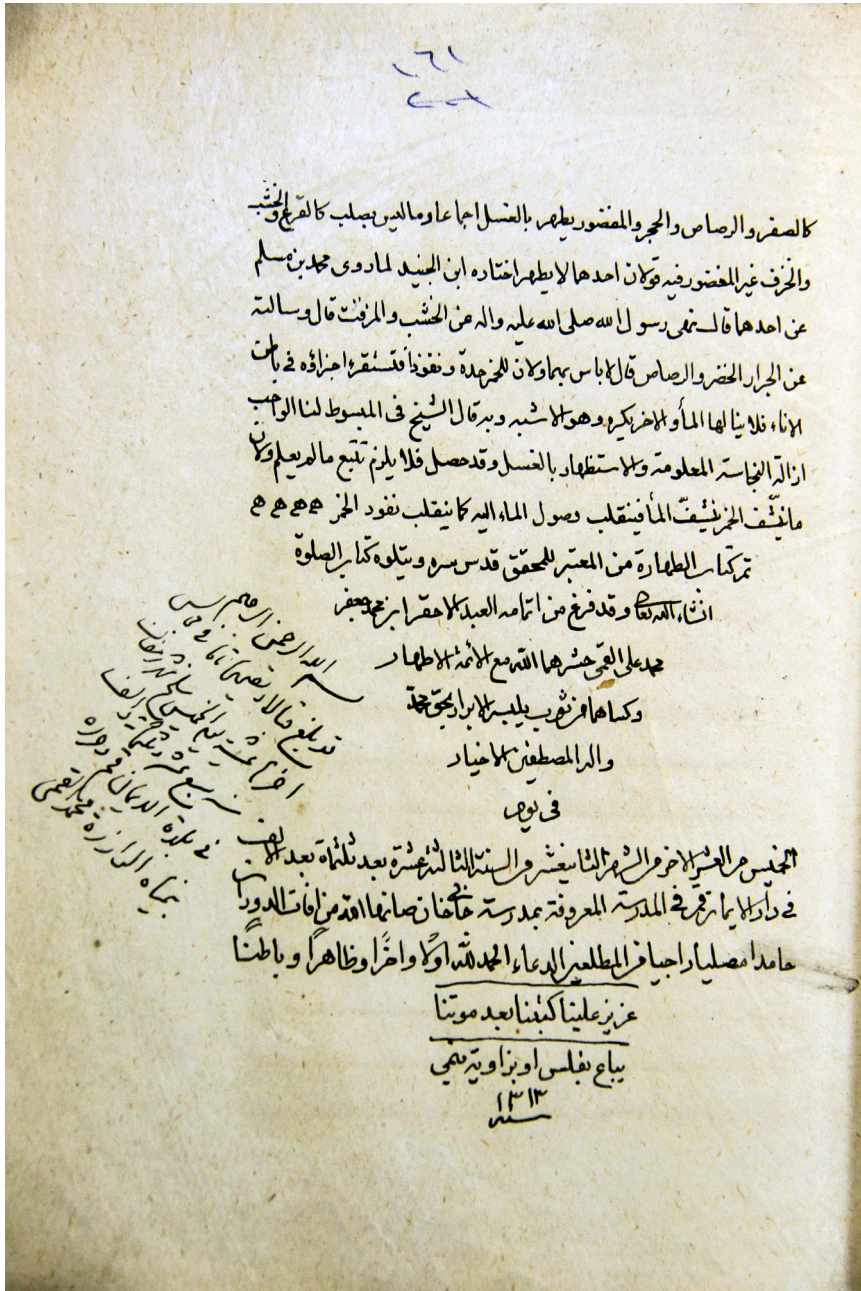 ١٦١
٢٠١
كالصفر والرصاص والحجر والمغضور يطهر بالغسل اجماعا وما ليس بصلب كالقرع والخشب
والخزف غير المغضور فيه قولان احدهما لا يطهر اختاره ابن الجنيد لما روى محمد بن مسلم
عن احدهما قال نهى رسول الله صلى الله عليه واله عن الخشب والمزفت قال وسالته
عن الجرار الخضر والرصاص قال لا باس بهما ولان للخمر حدة ونفوذا فتستقر اجزاؤه فى باطن
الاناء فلا ينالها الماء والاخر يكره وهو الاشبه وبه قال الشيخ فى المبسوط لنا الواجب
ازالة النجاسة المعلومة والاستظهار بالغسل وقد حصل فلا يلزم تتبع ما لم يعلم ولان
ما ينشف الخمر ينشف الماء فينقلب وصول الماء اليه كما ينقلب نفوذ الخمر ه ه ه ه
تم كتاب الطهارة من المعتبر للمحقق قدس سره ويتلوه كتاب الصلوة
انشاء الله تعالى وقد فرغ من اتمامه العبد الاحقر ابن محمد جعفر
محمد على القمى حشرهما الله مع الائمة الاطهار
وكساهما من ثوب يلبس الابرار بحق محمد
واله المصطفين الاخيار
فى يوم
الخميس من العشر الاخر من الشهر الثانيعشر من السنة الثالثة عشرة بعد ثلثماة بعد الالف
فى دار الايمان قم فى المدرسة المعروفة بمدرسة جانى خان صانها الله من افات الدوران
حامدا مصليا راجيا من المطلعين الدعاء الحمد لله اولا واخرا وظاهرا وباطنا
عزيز علينا كتبنا بعد موتنا
يباع بفلس او بزاوية
١٣١٣
سنه
بسم الله الرحمن الرحيم
قد بلغ
اخرها عشية يوم الخميس
فى بلدة الايمان قم
محمد القمى